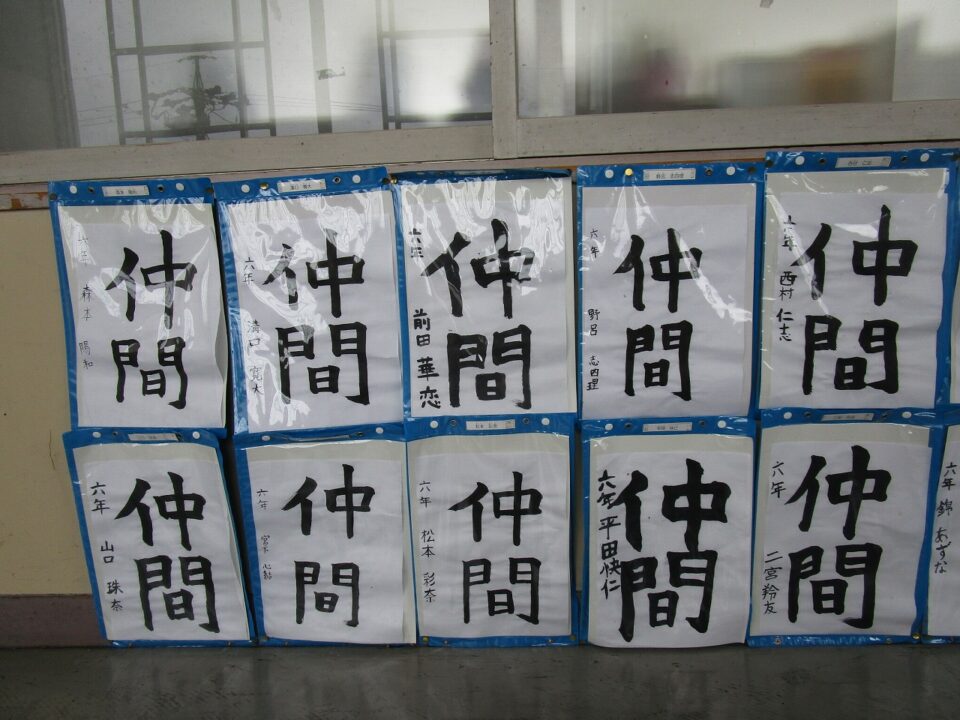 仲間
六年 森本 陽和
仲間
六年 溝口 寛大
仲間
六年 前田 華恋
仲間
六年 野呂 志四理
仲間
六年 西村 仁志
仲間
六年 山口 珠奈
仲間
六年 宮下 心結
仲間
六年 松本 彩奈
仲間
六年 平田 快仁
仲間
六年 二宮 羚友
六年 錦 あずな